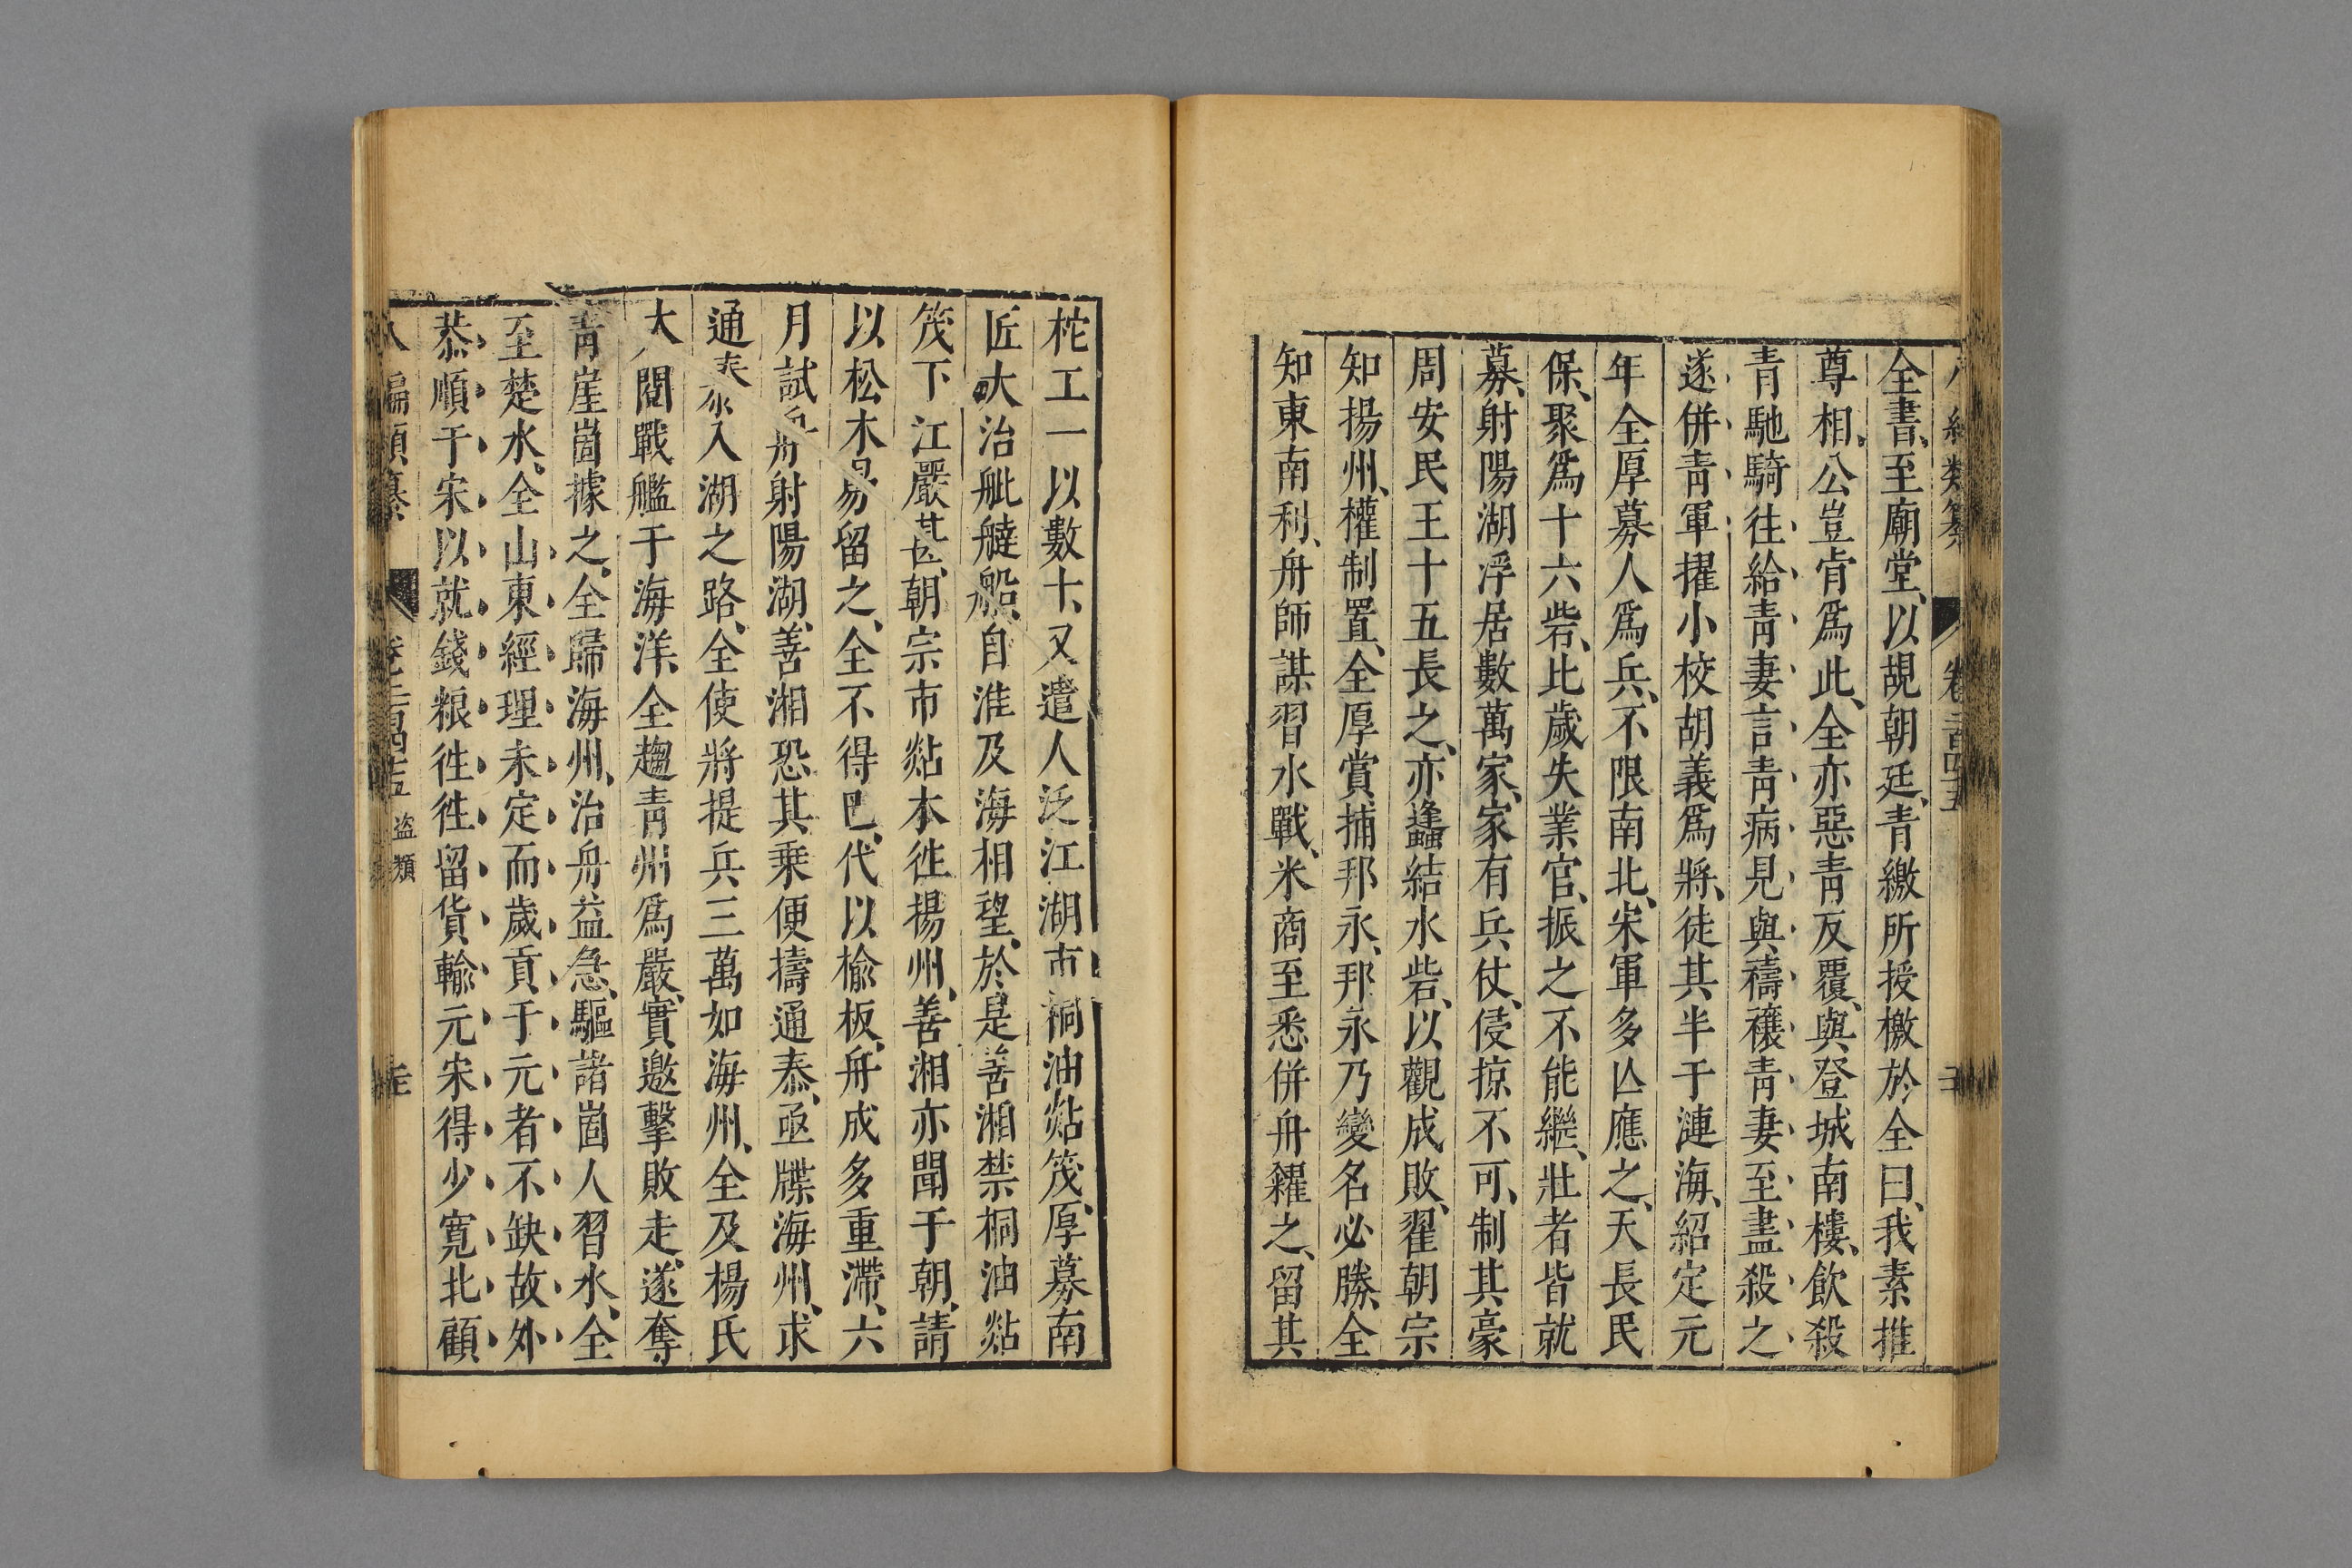 全書、至廟堂、以覘朝廷、青繳所授檄於全曰、我素推
尊相公、豈肯爲此、全亦惡青反覆、與登城南樓、飲殺
青馳騎往給青妻言青病見與禱禳青妻至盡殺之
遂併青軍擢小校胡義爲將、徒其半于漣海、紹定元
年全厚募人爲兵、不限南北、宋軍多亾應之、天長民
保、聚爲十六砦、比歲失業官、振之不能繼、壯者皆就
募、射陽湖浮居數萬家、家有兵仗、侵掠不可、制其豪
周安民王十五長之、亦蠭結水砦、以觀成敗、翟朝宗
知揚州、權制置、全厚賞捕邦永、邦永乃變名必勝、全
知東南利、舟師謀習水戰、米商至悉併舟糴之、留其
柁工一以數十、又遣人泛江湖市桐油㸃筏、厚募南
匠大治舡艫船、自淮及海相望、於是善湘禁桐油㸃
筏下江嚴甚、朝宗市㸃木徃揚州、善湘亦聞于朝、請
以松木易留之、全不得已、代以榆板、舟成多重滯、六
月試舟射陽湖、善湘恐其乗便擣通泰、亟牒海州、求
通泰入湖之路、全使將提兵三萬如海州、全及楊氏
大閱戰艦于海洋、全趨青州爲嚴、實邀擊敗走、遂奪
青崖崮據之、全歸海州、治舟益急、驅諸崮人習水、全
至楚水、全山東經理未定而歲貢于元者不缺故外
恭順于宋以就錢粮徃徃留貨輸元宋得少寛北顧
盜類